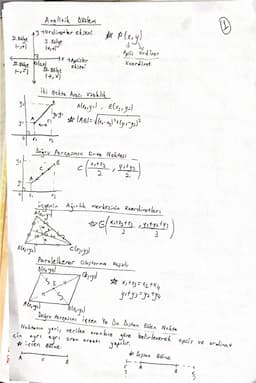 Analitik Düzlem
1
y → ordinatlar ekseni
* P(x,y)
II. Bölge
(-,+)
I. Bölge
(+,+)
Apsis ordinat
koordinat
III. Bölge
(-,-)
IV. Bölge
(+,-)
İki Nokta Arası Uzaklık
A(x₁,y₁), B(x₂,y₂)
* |AB| = √(x₁-x₂)²+(y₁-y₂)²
Doğru Parçasının Orta Noktası
C(x₁+x₂/2, y₁+y₂/2)
Üçgenin Ağırlık merkezinin koordinatları
A(x₁,y₁)
* G(x₁+x₂+x₃/3, y₁+y₂+y₃/3)
B(x₂,y₂)
C(x₃,y₃)
Paralelkenar Oluşturma
* x₁+x₃=x₂+x₄
y₁+y₃=y₂+y₄
Doğru Parçasını İçten Ya Da Dıştan Bölen Nokta
Noktanın yeri, verilen orantıya göre belirlenerek apsis ve ordinat
için ayrı ayrı oran orantı yapılır.
* İçten Bölme
* Dıştan Bölme
A C B